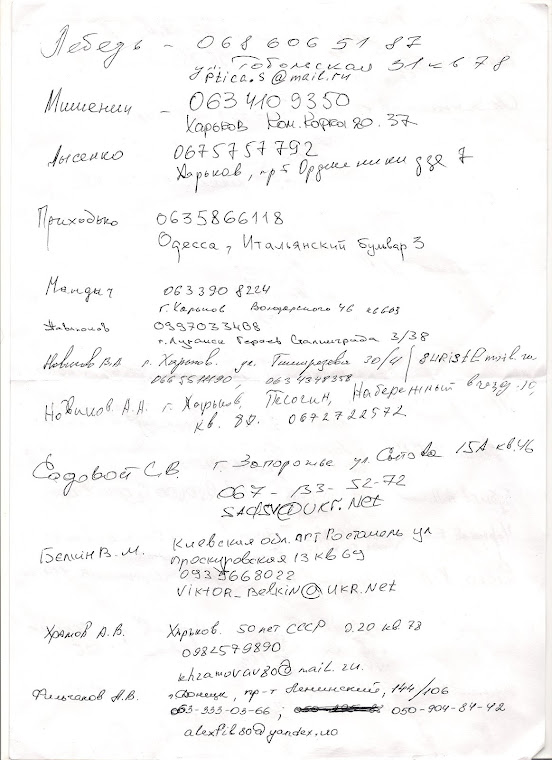 Лебедь - 068 606 51 87
ул. Тобольская 31 кв 78
Ptica.s@mail.ru
Мишенин - 063 410 9350
Харьков Ком. Корка 20. 37
Лысенко 0675757792
Харьков, пр-т Орджоникидзе 7
Приходько 0635866118
Одесса, Итальянский бульвар 3
Мандыч 063 390 8224
г. Харьков Володарского 46 кв603
0997033408
г. Луганск Героев Сталинграда 3/38
Новиков В.В. г. Харьков. ул. Тимирязева 30/4
063 4348358
Новиков А.А. г. Харьков, Песочин, Набережный въезд
кв. 80. 0672722572
Садовой С.В. г. Запорожье ул. 15А кв. 46
067 - 133 - 52-72
SADSV@UKR.Net
Белкин В.М. Киевская обл. ПГТ Гостомель ул
Проскуровская 13 кв 69
0935668022
VIKTOR_Belkin@UKR.Net
Храмов А.В. Харьков. 50 лет СССР д.20 кв. 78
0982579890
khramovav80@mail.ru.
Фильчаков А.В. г. Донецк, пр-т Ленинский, 144/106
063-333-03-66; 050-904-84-42
alexfil80@yandex.ru